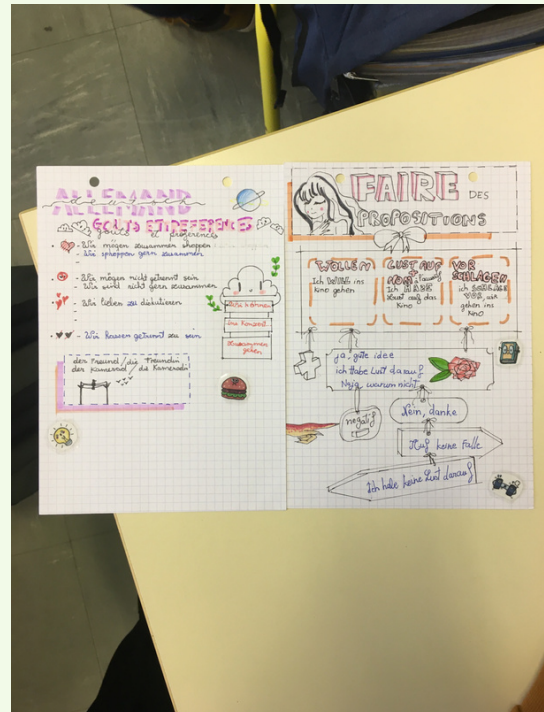 ALLEMAND
deutsch
GOUTS ET PREFERENCES
goûts et préférences
- Wir mögen zusammen shoppen
- Wir shoppen gern zusammen
- Wir mögen nicht getrennt sein
- Wir sind nicht gern zusammen
- Wir lieben zu diskutieren
- Wir hassen getrennt zu sein
Wir können
ins Konzert
zusammen
gehen
der Freund / die Freundin
der Kamerad / die Kameradin
FAIRE DES
PROPOSITIONS
WOLLEN
Ich ins
Kino gehen
LUST AUF
Ich HABE
Lust auf das
Kino
VOR
SCHLAGEN
ich
VOR, wir
gehen ins
Kino
ja, gute idee
ich habe Lust darauf
warum nicht
negatif
Nein, danke
Auf keine Falle
Ich habe keine Lust darauf